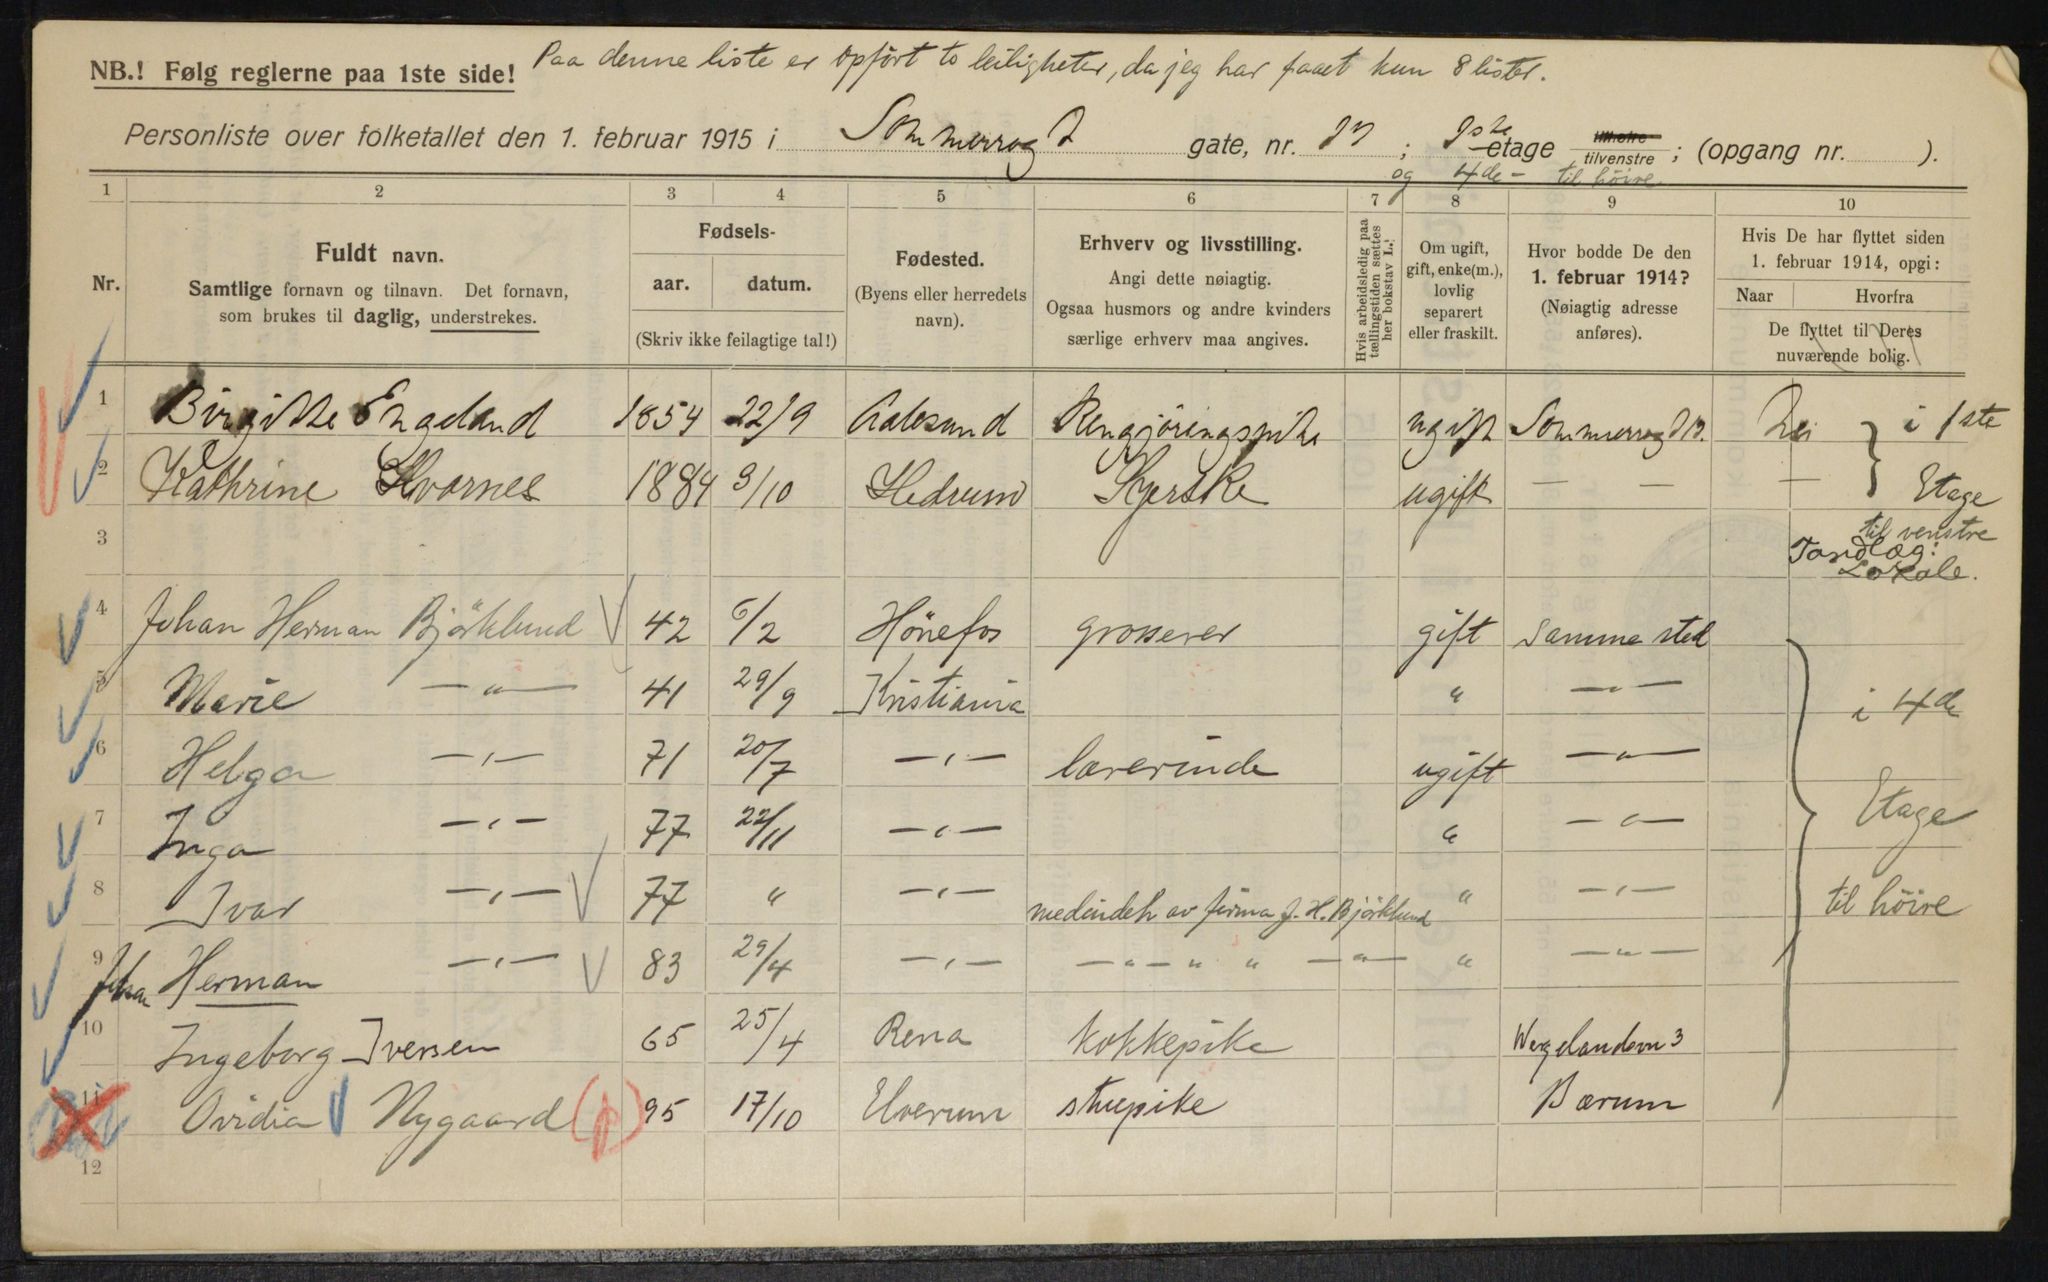 Paa denne liste er opført to leiligheter, da jeg har faaet kun 8 lister.
NB.! Følg reglerne paa 1ste side!
Personliste over folketallet den 1. februar 1915 i Sommerrog gate, nr. ; 1ste etage tilvenstre ; (opgang nr. ).
og 4de - til höire
1 2 3 4 5 6 7 8 9 10
Nr.
Fuldt navn.
Samtlige fornavn og tilnavn. Det fornavn,
som brukes til daglig, understrekes.
Fødsels-
aar. datum.
(Skriv ikke feilagtige tal!)
Fødested.
(Byens eller herredets
navn).
Erhverv og livsstilling.
Angi dette nøiagtig.
Ogsaa husmors og andre kvinders
særlige erhverv maa angives.
Hvis arbeidsledig paa
tællingstiden sættes
her bokstav L.!
Om ugift,
gift, enke(m.),
lovlig
separert
eller fraskilt.
Hvor bodde De den
1. februar 1914?
(Nøiagtig adresse
anføres).
Hvis De har flyttet siden
1. februar 1914, opgi:
Naar Hvorfra
De flyttet til Deres
nuværende bolig.
1 Birgitte Engeland 1854 22/9 Aalesund Rengjöringspike ugift Sommerrogd 13. Nei i 1ste
2 Kathrine Kvarnes 1884 9/10 Hedrum Syerske ugift — — — Etage
til venstre
3 Tandlæg:
Lokale.
4 Johan Herman Björklund 42 6/2 Hönefos grosserer gift Samme sted
5 Marie —"— 41 29/9 Kristiania " —"— i 4de
6 Helga —"— 71 20/7 —"— lærerinde ugift —"—
7 Inga —"— 77 22/11 —"— " —"— Etage
8 Ivar —"— 77 " —"— medindeh av firma J. H. Björklund " —"— til höire
9 Johan Herman —"— 83 29/4 —"— —"—"  " —"— " —"—
10 Ingeborg Iversen 65 25/4 Rena kokkepike Wergelandsvn 3
11 Ovidia Nygaard (p) 95 17/10 Elverum stuepike Bærum
12